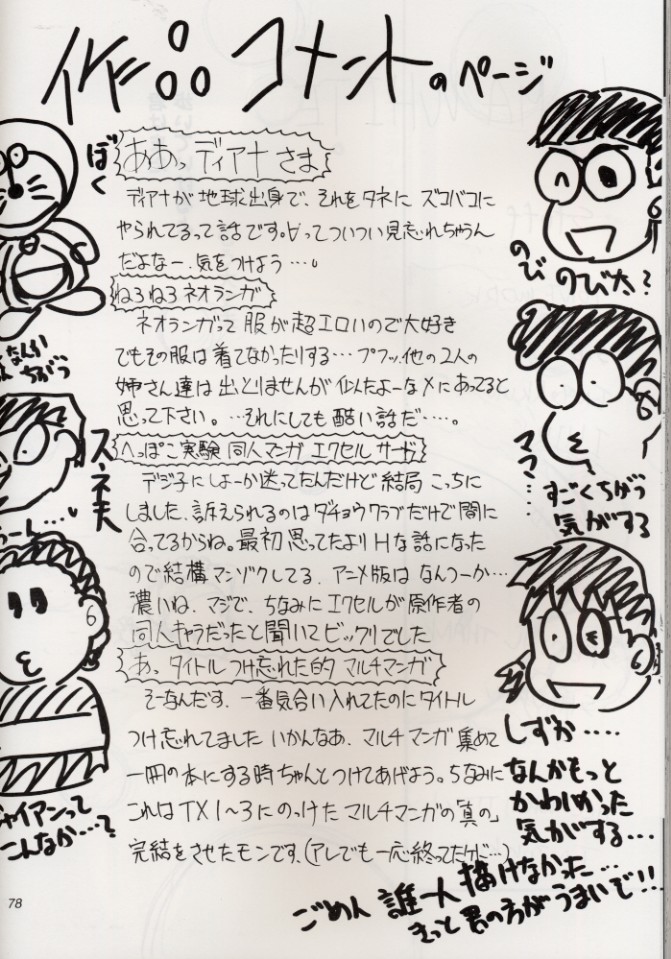 作品コメントのページ
ああっディアナさま
ディアナが地球出身で、それをタネにズコバコに
やられてるって話です。∀ってついつい見忘れちゃうん
だよなー、気をつけよう…。
ねろねろネオランガ
ネオランガって服が超エロいので大好き
でもその服は着てなかったりする…プフッ、他の2人の
姉さん達は出とりませんが似たよーなメにあってると
思って下さい。…それにしても酷い話だ…。
へっぽこ実験同人マンガ エクセルサード
デジ子にしよーか迷ってたんだけど結局こっちに
しました、訴えられるのはダチョウクラブだけで間に
合ってるからね。最初思ってたよりHな話になった
ので結構マンゾクしてる、アニメ版はなんつーか…
濃いね、マジで、ちなみにエクセルが原作者の
同人キャラだったと聞いてビックリでした
あ、タイトルつけ忘れた的マルチマンガ
そーなんだす、一番気合い入れてたのにタイトル
つけ忘れてました いかんなあ、マルチマンガ集めて
一冊の本にする時ちゃんとつけてあげよう。ちなみに
これはTX1〜3にのっけたマルチマンガの「真の」
完結をさせたモンです、(アレでも一応終ってたけど…)
ぼく
なんか
ちがう
スネ夫
うーん…
ジャイアンって
こんなか…?
のび のび太?
ママ…
すごくちがう
気がする
しずか‥‥
なんかもっと
かわいかった
気がする…
ごめん 誰一人描けなかった…
きっと君の方がうまいで!!
78